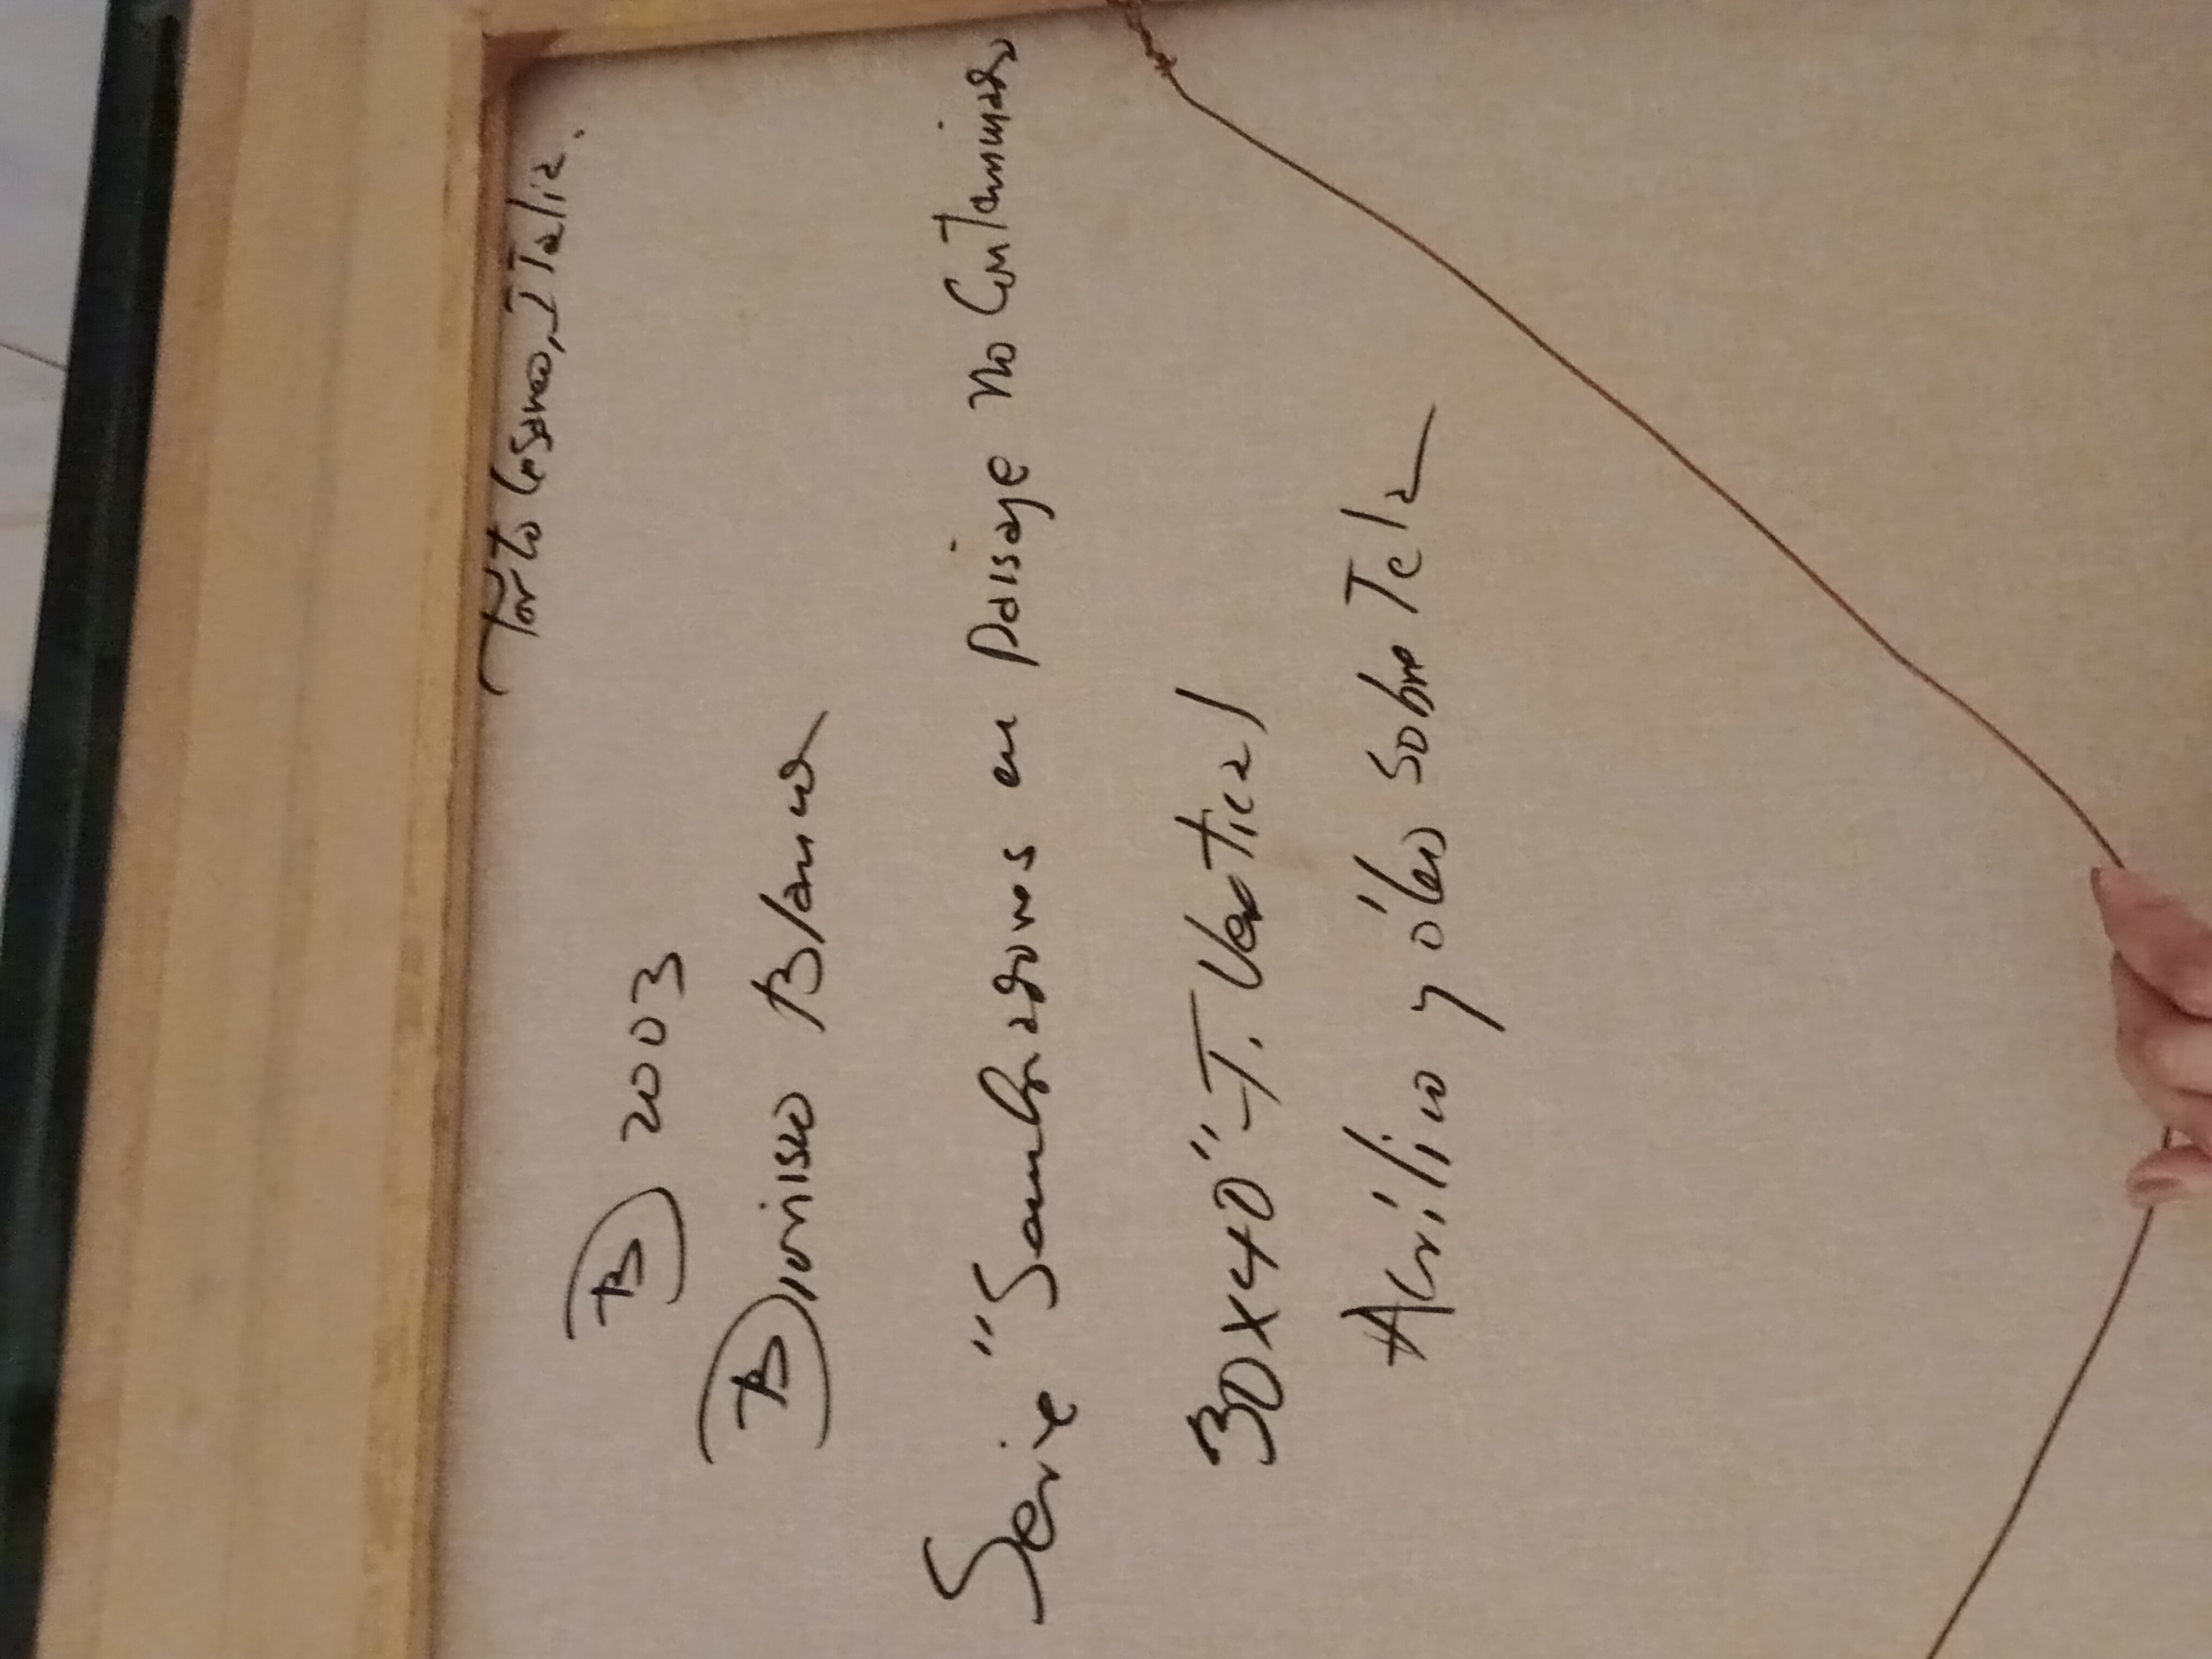 Porto Cesareo, Italia.
B 2003
B Dionisio Blanco
Serie "Sembradores en Paisaje no Contaminado
30x40"-T. Vertical
Acrílico y óleo sobre Tela